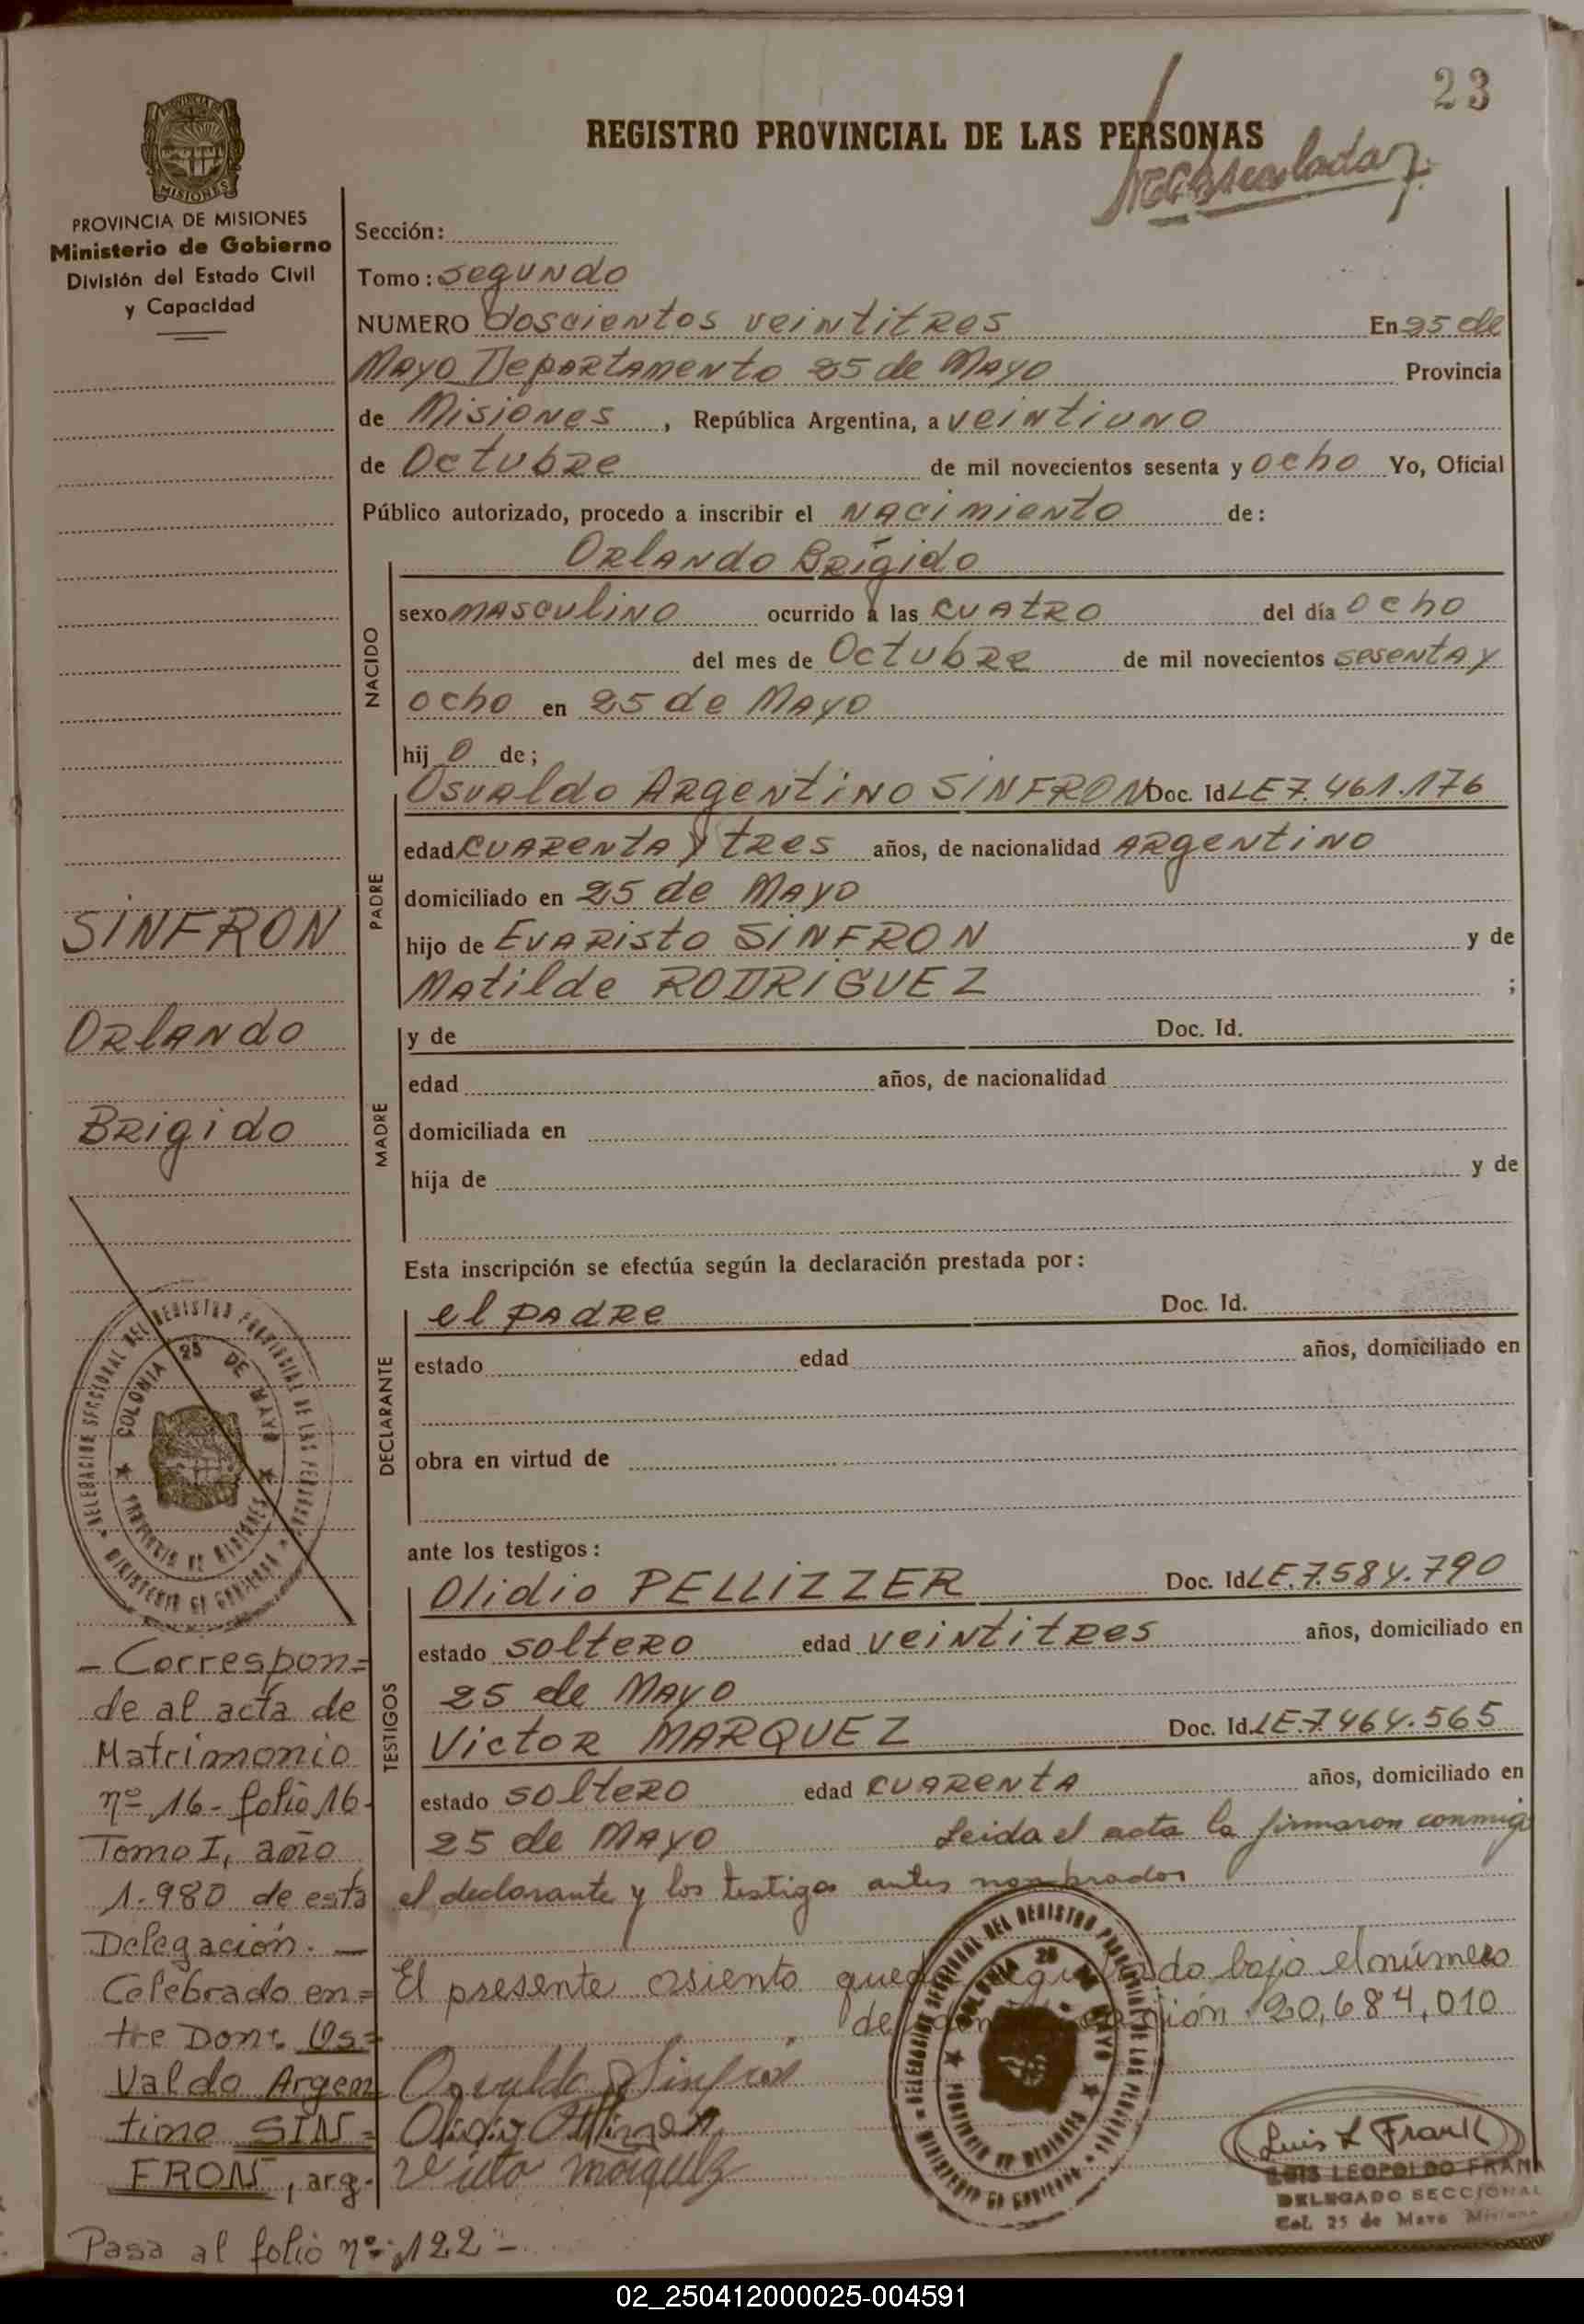 23
REGISTRO PROVINCIAL DE LAS PERSONAS
PROVINCIA DE
MISIONES
PROVINCIA DE MISIONES
Ministerio de Gobierno
División del Estado Civil
y Capacidad
Sección:
Tomo: segundo
NUMERO doscientos veintitres En 25 de
Mayo Departamento 25 de Mayo Provincia
de Misiones, República Argentina, a veintiuno
de Octubre de mil novecientos sesenta y ocho Yo, Oficial
Público autorizado, procedo a inscribir el nacimiento de:
Orlando Brígido
NACIDO
sexo masculino ocurrido a las cuatro del día ocho
del mes de Octubre de mil novecientos sesenta y
ocho en 25 de Mayo
hij o de;
PADRE
Osvaldo Argentino SINFRON Doc. Id LE 7.461.176
edad cuarenta y tres años, de nacionalidad Argentino
domiciliado en 25 de Mayo
hijo de Evaristo SINFRON y de
Matilde RODRIGUEZ ;
MADRE
y de Doc. Id.
edad años, de nacionalidad
domiciliada en
hija de y de
Esta inscripción se efectúa según la declaración prestada por:
DECLARANTE
el padre Doc. Id.
estado edad años, domiciliado en
obra en virtud de
ante los testigos:
TESTIGOS
Olidio PELLIZZER Doc. Id LE.7.584.790
estado soltero edad veintitres años, domiciliado en
25 de Mayo
Victor MARQUEZ Doc. Id. LE.7.464.565
estado soltero edad cuarenta años, domiciliado en
25 de Mayo Leida el acta la firmaron conmigo
el declarante y los testigos antes nombrados
El presente asiento queda do bajo el número
de 20,684,010
SINFRON
Orlando
Brigido
DELEGACION SECCIONAL DEL REGISTRO PROVINCIAL DE LAS PERSONAS
MINISTERIO DE GOBIERNO
COLONIA 25 DE MAYO
PROVINCIA DE MISIONES
- Correspon=
de al acta de
Matrimonio
nº 16- folio 16-
Tomo I, año
1.980 de esta
Delegación. —
Celebrado en=
tre Don: Os=
valdo Argen
tino SIN=
FRON, arg.
Pasa al folio nº 122 -
Osvaldo A Sinfron
Victo Marquez
DELEGACION SECCIONAL DEL REGISTRO PROVINCIAL DE LAS PERSONAS
MINISTERIO DE GOBIERNO
COLONIA 25 DE MAYO
PROVINCIA DE MISIONES
Luis L Frank
LUIS LEOPOLDO FRANK
DELEGADO SECCIONAL
Col. 25 de Mayo Misiones
02_250412000025-004591